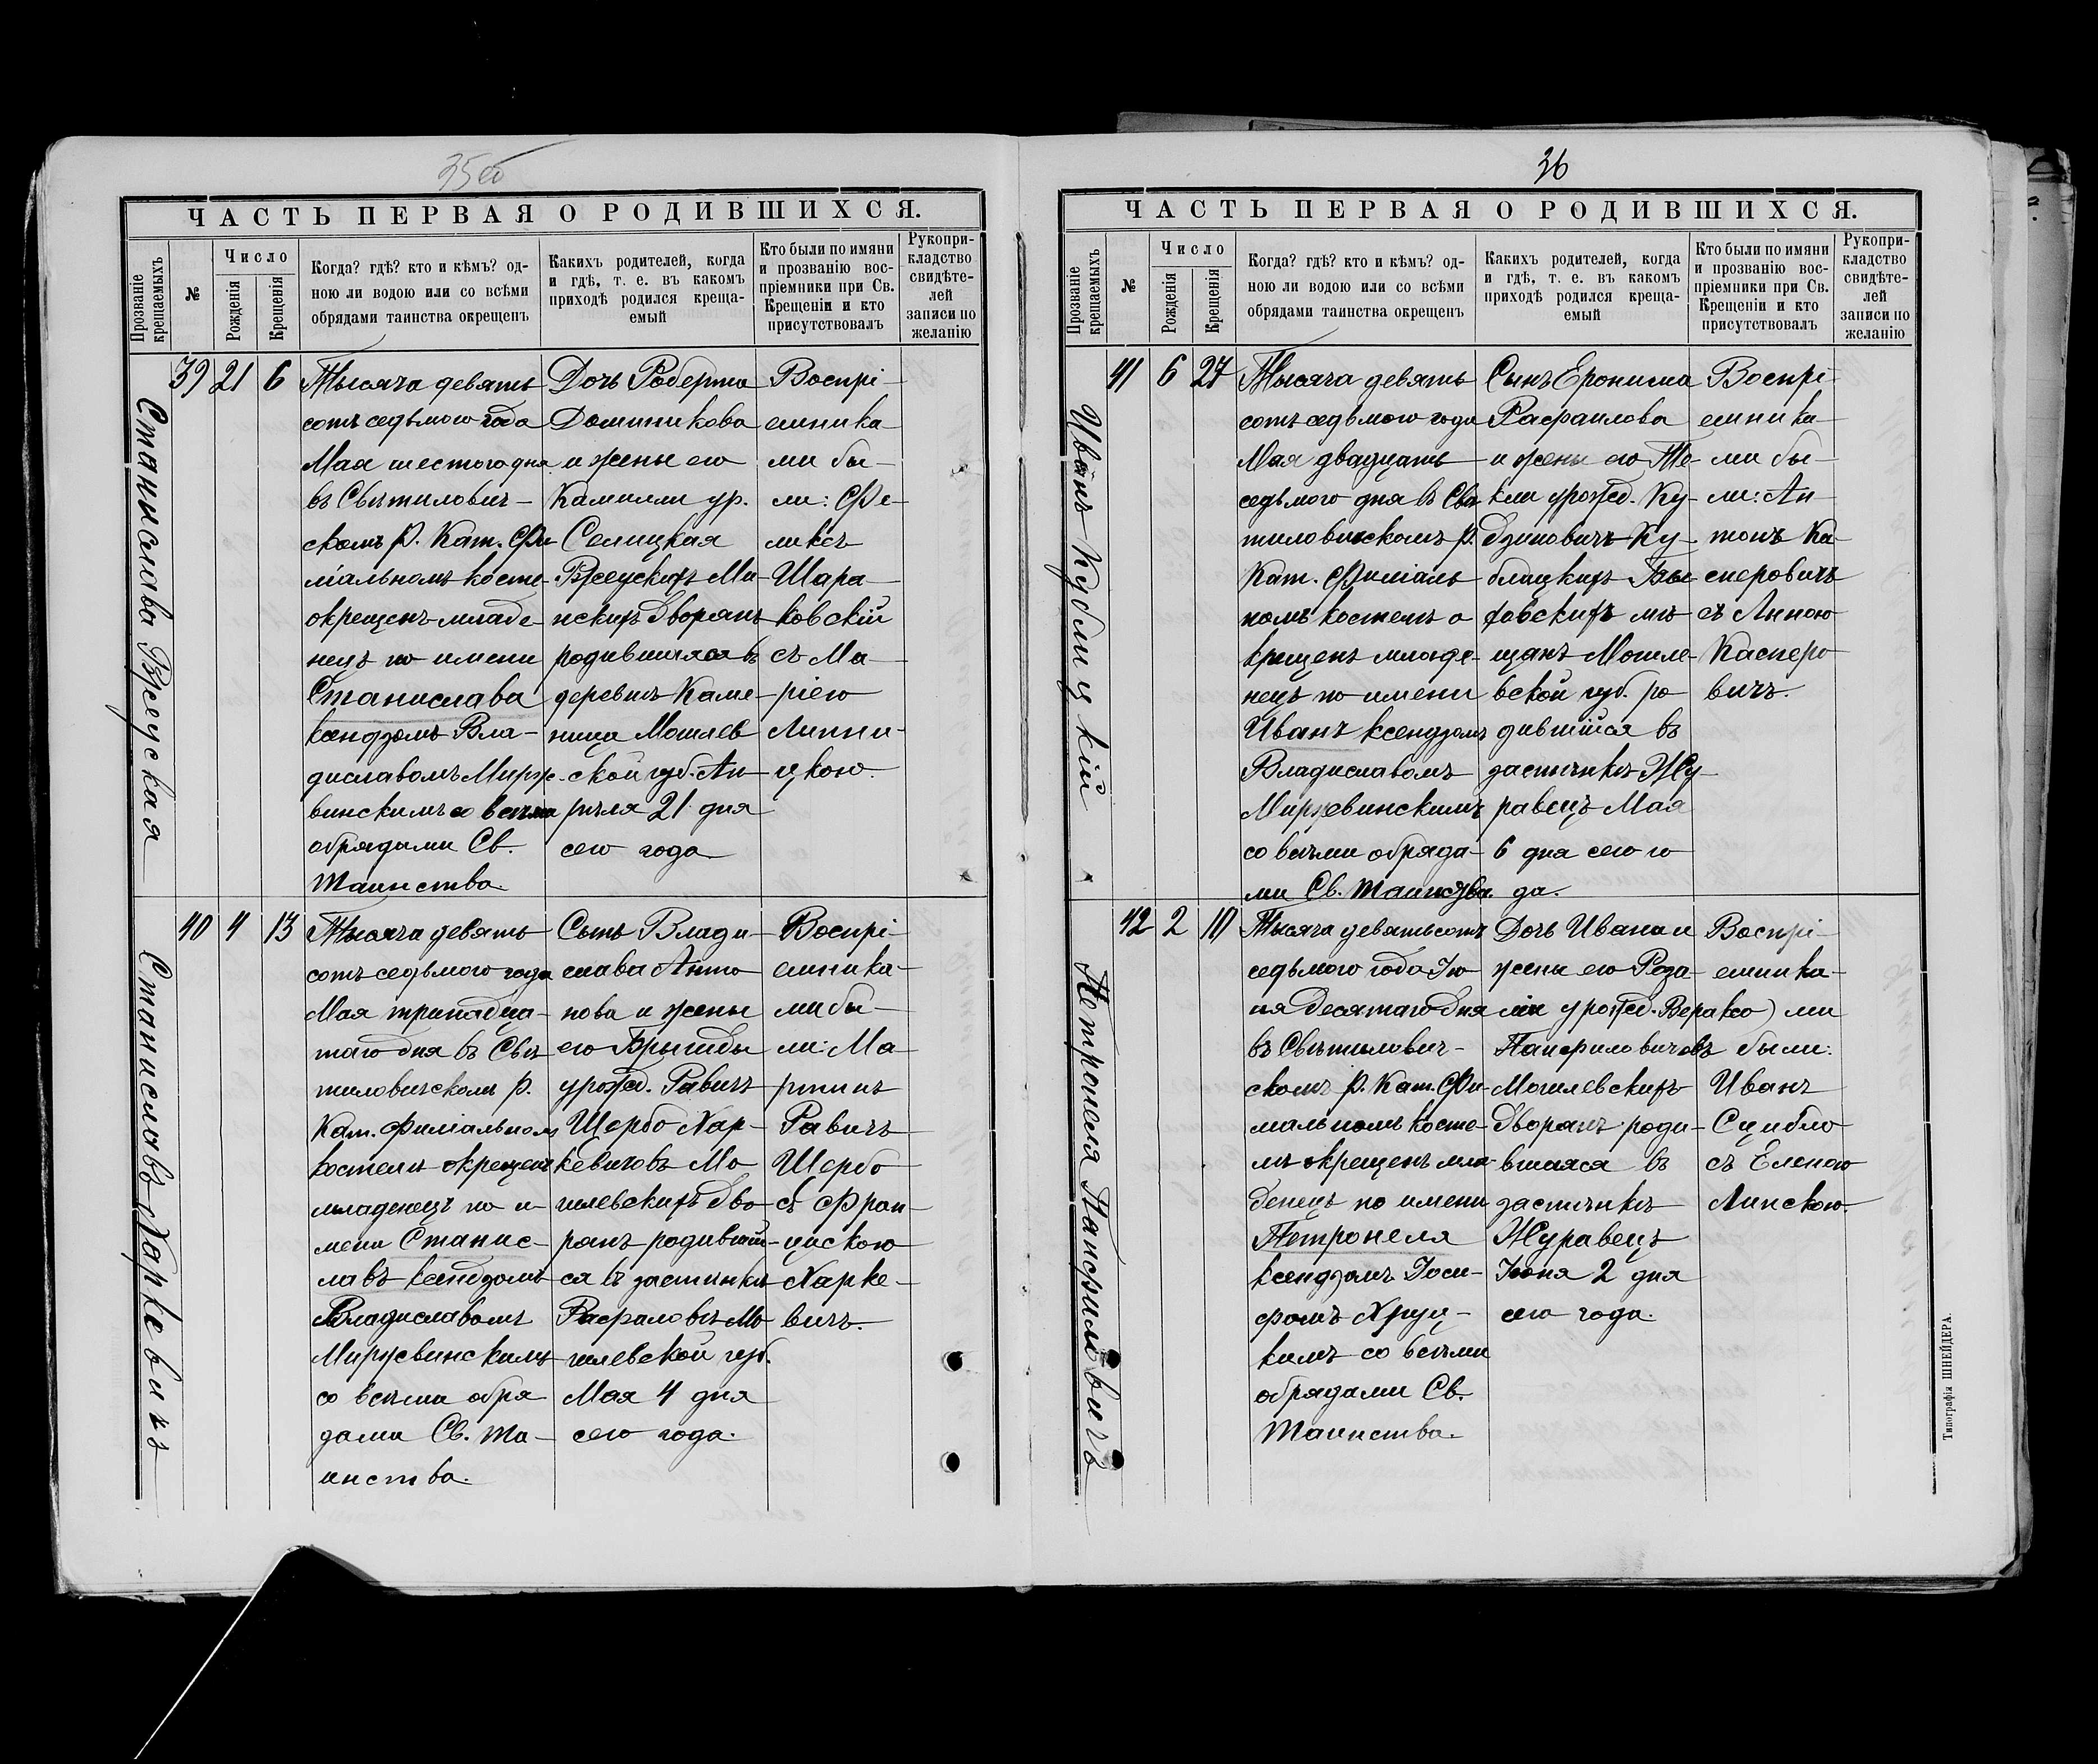 35об
ЧАСТЬ ПЕРВАЯ О РОДИВШИХСЯ.
Прозваніе
крещаемыхъ
№
Число
Рожденія
Крещенія
Когда? гдѣ? кто и кѣмъ? од-
ною ли водою или со всѣми
обрядами таинства окрещенъ
Какихъ родителей, когда
и гдѣ, т. е. въ какомъ
приходѣ родился креща-
емый
Кто были по имяни
и прозванію вос-
пріемники при Св.
Крещеніи и кто
присутствовалъ
Рукопри-
кладство
свидѣте-
лей
записи по
желанію
Станислава Вжецская
39
21
6
Тысяча девять
сотъ седьмого года
Мая шестого дня
въ Свѣтилович-
скомъ Р. Кат. Фи-
ліальномъ косте-
окрещенъ младе-
нецъ по имени
Станислава
ксендзомъ Вла-
диславомъ Мирж-
винскимъ со всѣми
обрядами Св.
Таинства.
Дочь Роберта
Доминикова
и жены его
Камилли ур.
Селицкая
Вжецскихъ Ми-
нскихъ дворянъ
родившаяся въ
деревнѣ Каме-
ница Могилев
ской губ. Ап-
рѣля 21 дня
сего года.
Воспрі-
емника-
ми бы-
ли: Фе-
ликсъ
Шара-
ковскій
съ Ма-
ріею
Липни-
цкою.
Станиславъ Харкевичъ
40
4
13
Тысяча девять
сотъ седьмого года
Мая тринадца-
таго дня въ Свѣ
тиловичскомъ Р.
Кат. Филіальномъ
костелѣ окрещенъ
младенецъ по и-
мени Станис-
лавъ ксендзомъ
Владиславомъ
Миржвинскимъ
со всѣми обря
дами Св. Та-
инства.
Сынъ Влади-
слава Анто
нова и жены
его Бригиды
урожд. Равичъ
Щербо Хар-
кевичовъ Мо
гилевскихъ дво-
рянъ родивший-
ся въ застѣнкѣ
Рафаловѣ Мо
гилевской губ.
Мая 4 дня
сего года.
Воспрі-
емника-
ми бы-
ли: Ма
ртинъ
Равичъ
Щербо
съ Фран-
цискою
Харке-
вичъ.
36
ЧАСТЬ ПЕРВАЯ О РОДИВШИХСЯ.
Прозваніе
крещаемыхъ
№
Число
Рожденія
Крещенія
Когда? гдѣ? кто и кѣмъ? од-
ною ли водою или со всѣми
обрядами таинства окрещенъ
Какихъ родителей, когда
и гдѣ, т. е. въ какомъ
приходѣ родился креща-
емый
Кто были по имяни
и прозванію вос-
пріемники при Св.
Крещеніи и кто
присутствовалъ
Рукопри-
кладство
свидѣте-
лей
записи по
желанію
Иванъ Кублицкій
41
6
27
Тысяча девять
сотъ седьмого года
Мая двадцать
седьмого дня въ Свѣ
тиловичскомъ Р.
Кат. Филіаль
номъ костелѣ о
крещенъ младе-
нецъ по имени
Иванъ ксендзомъ
Владиславомъ
Миржевинскимъ
со всѣми обряда-
ми Св. Таинства.
Сынъ Еронима
Рафаилова
и жены его Те-
кли урожд. Ку-
дзиновичъ Ку-
блицкихъ
мѣ
щанъ Могиле-
вской губ. ро
дившійся въ
застѣнкѣ Жу-
равецъ Мая
6 дня сего го
да.
Воспрі-
емника-
ми бы-
ли: Ан-
тонъ Ка-
сперовичъ
съ Анною
Касперо
вичъ.
Петронеля Панфиловичъ
42
2
10
Тысяча девятьсотъ
седьмого года Ію
ня десятаго дня
въ Свѣтилович-
скомъ Р. Кат. Фи-
мальномъ косте-
лѣ окрещенъ мла-
денецъ по имени
Петронеля
ксендзомъ Іоси-
фомъ Хруц-
кимъ со всѣми
обрядами Св.
Таинства.
Дочь Ивана и
жены его Роза-
ліи урожд. Верансо)
Панфиловичовъ
Могилевскихъ
дворянъ роди-
вшаяся въ
застѣнкѣ
Журавецъ
Іюня 2 дня
сего года.
Воспрі-
емника-
ми
были:
Иванъ
Сцибло
съ Еленою
Липскою.
Типографія ШНЕЙДЕРА.